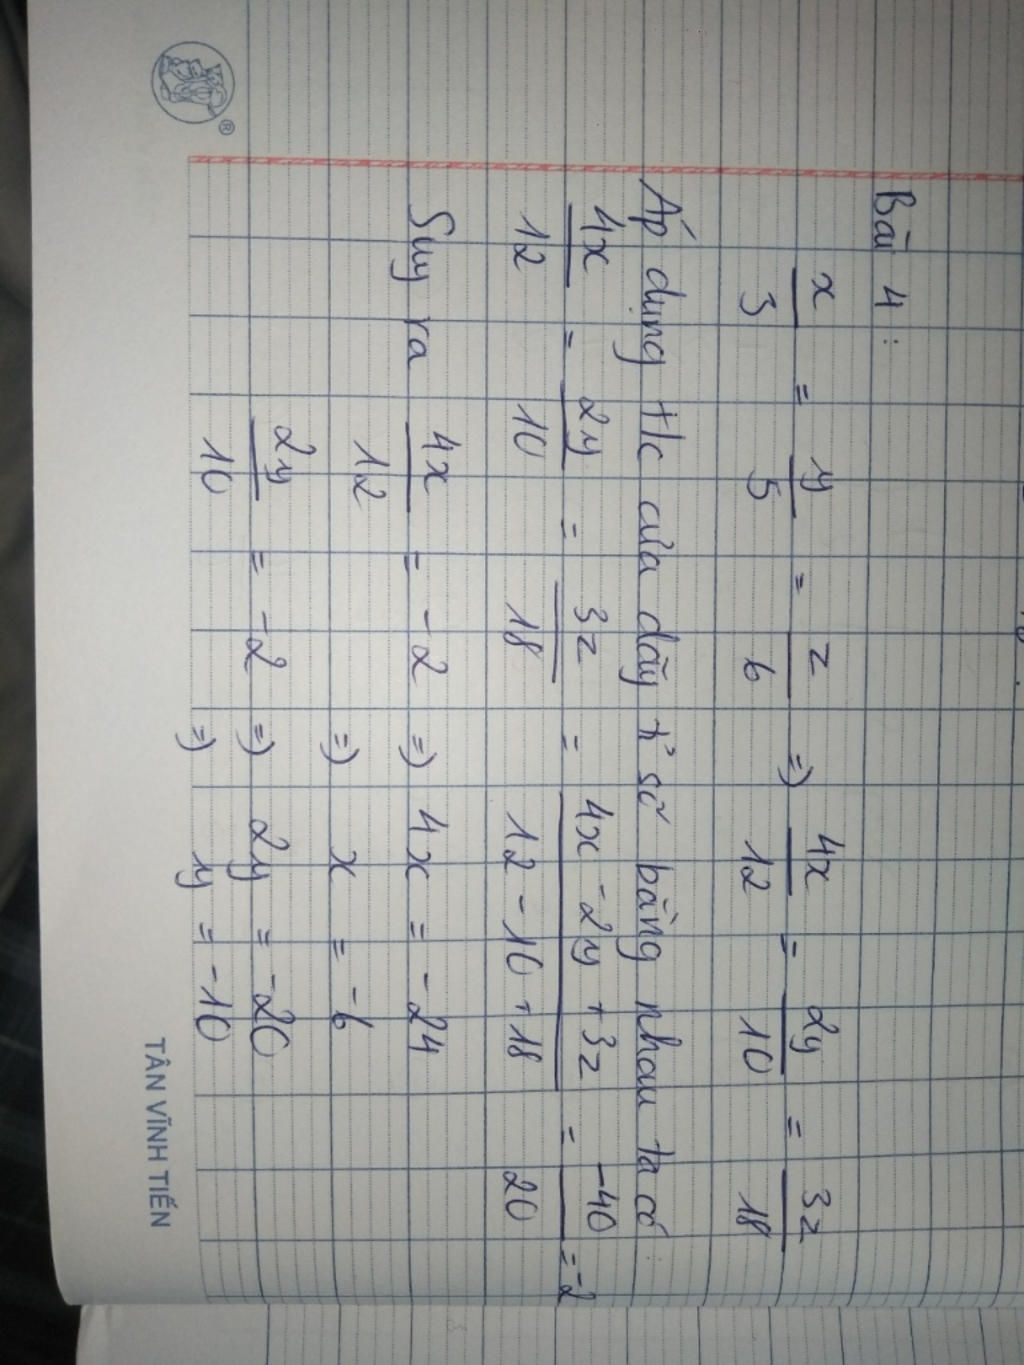 Bài 4 :
x/3 = y/5 = z/6 => 4x/12 = 2y/10 = 3z/18
Áp dụng t/c của dãy tỉ số bằng nhau ta có :
4x/12 = 2y/10 = 3z/18 = 4x - 2y + 3z/12 - 10 + 18 = -40/20 = -2
Suy ra 4x/12 = -2 => 4x = -24
=> x = -6
2y/10 = -2 => 2y = -20
=> y = -10
TÂN VĨNH TIẾN
®